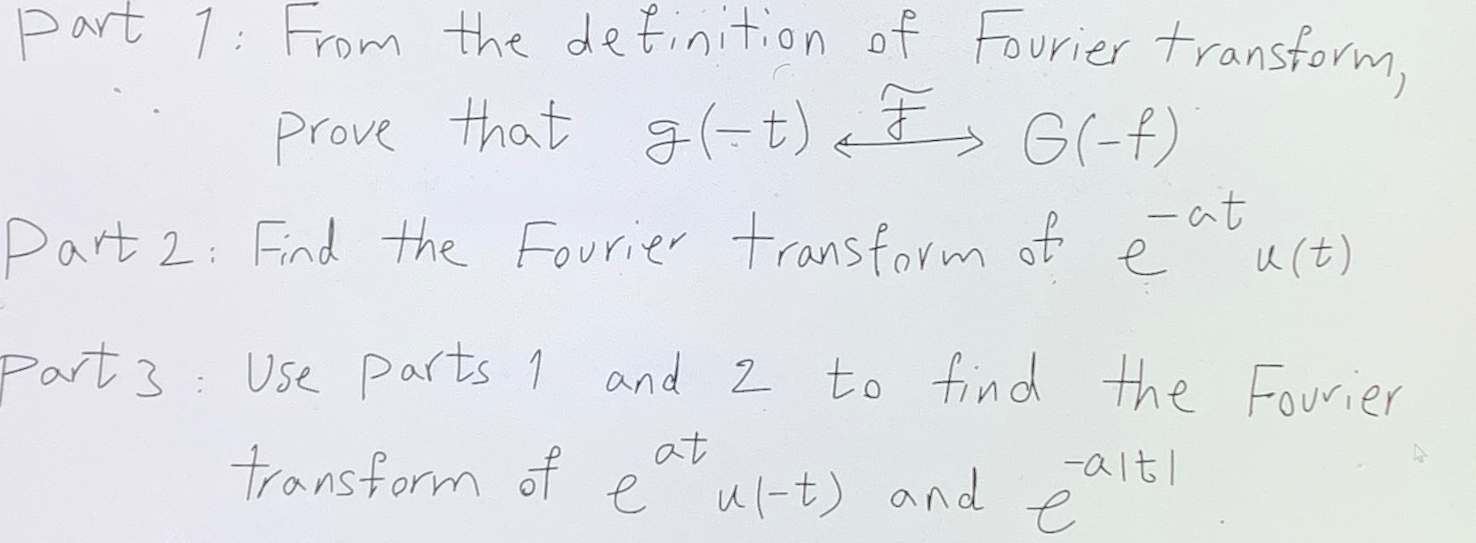 Part 1: From the definition of Fourier transform,
prove that g(-t) ⟷ℱ G(-f)
Part 2: Find the Fourier transform of e^{-at} u(t)
Part 3: Use parts 1 and 2 to find the Fourier
transform of e^{at} u(-t) and e^{-a|t|}.